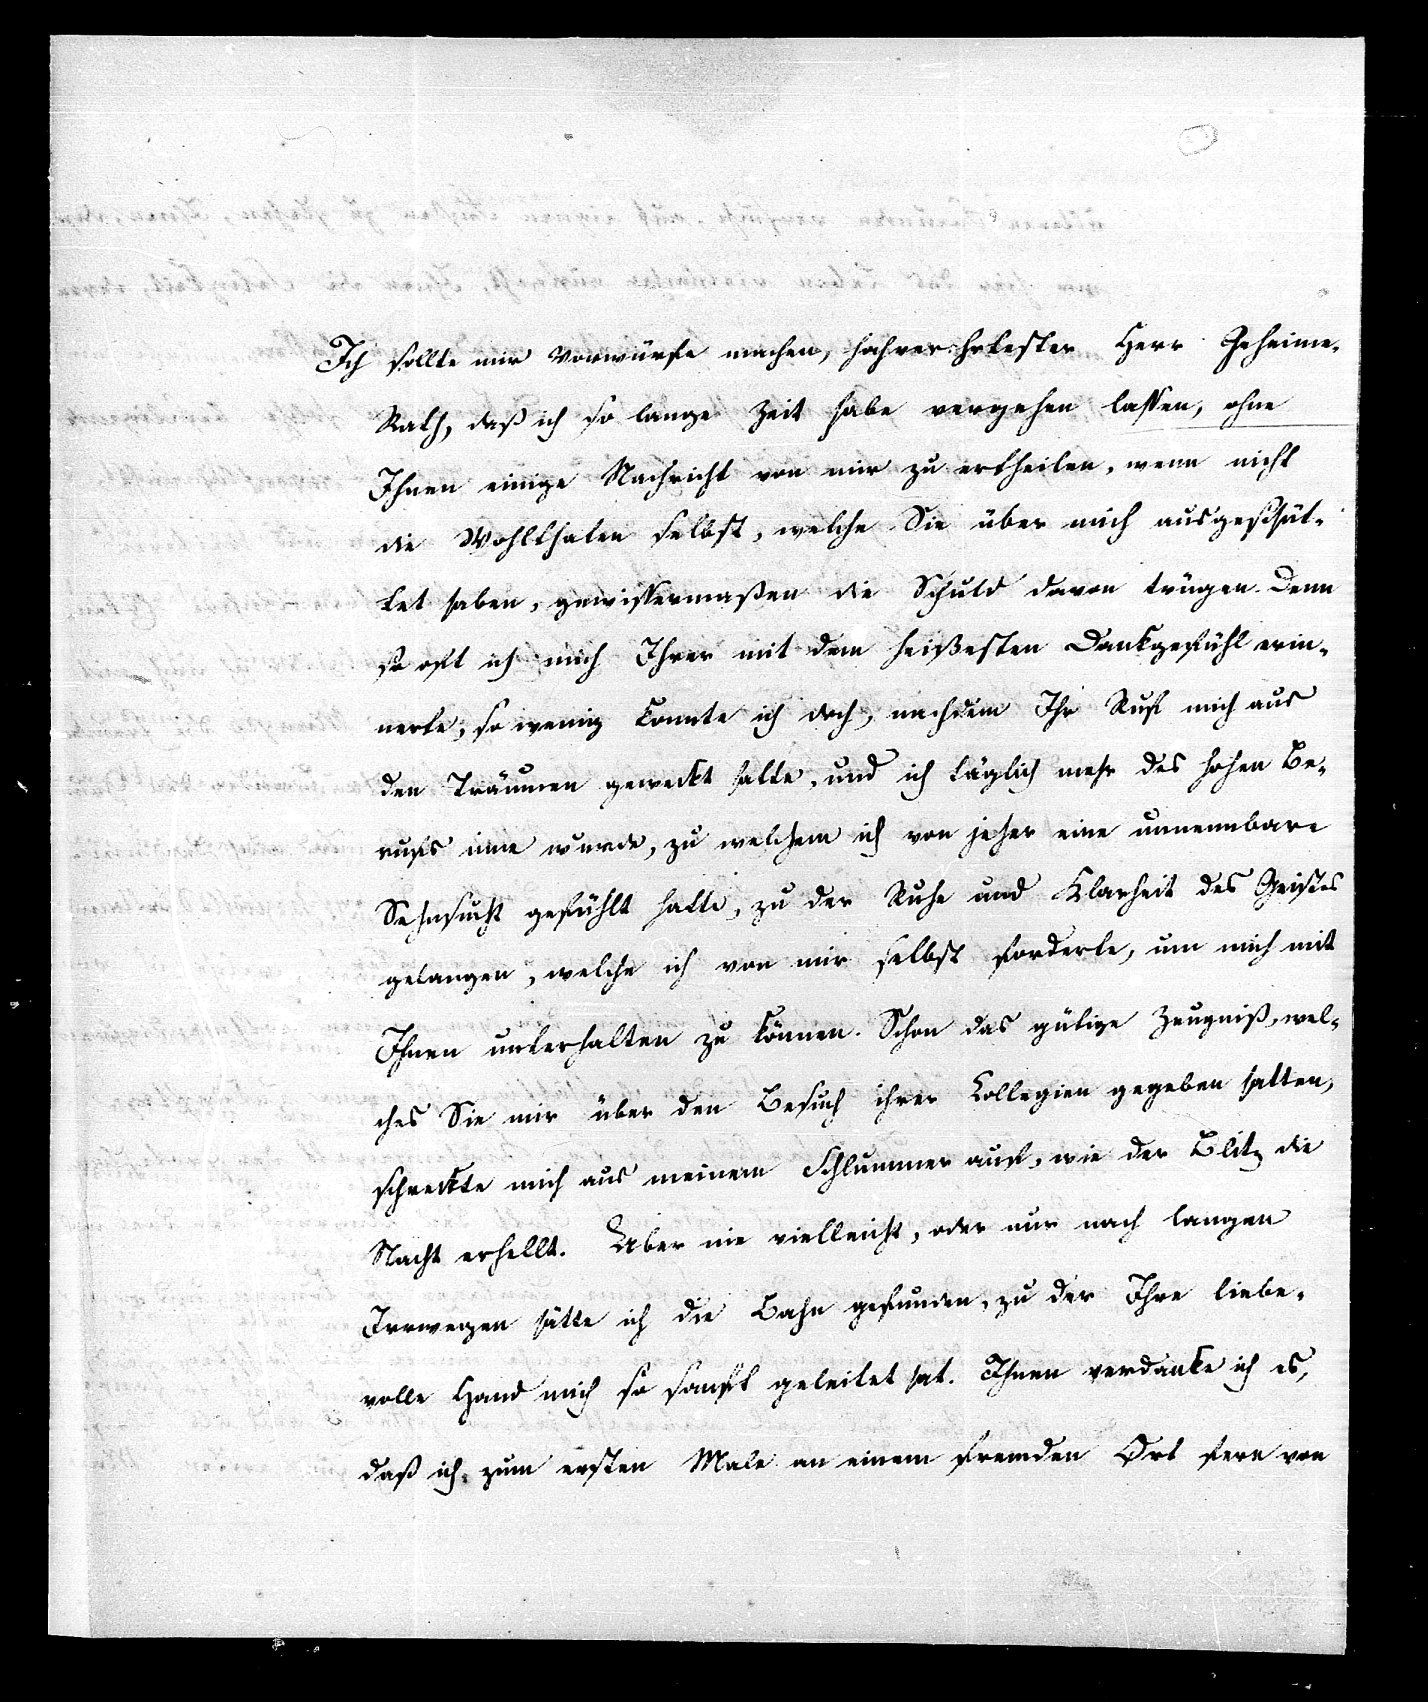 Ich sollte mir Vorwürfe machen, hochverehrtester Herr Geheime-
Rath, daß ich so lange Zeit habe vergehen lassen, ohne
Ihnen einige Nachricht von mir zu ertheilen, wenn nicht
die Wohlthaten selbst, welche Sie über mich ausgeschüt-
tet haben, gewissermaßen die Schuld davon trügen. Denn
so oft ich mich Ihrer mit dem heißesten Dankgefühl erin-
nerte, so wenig konnte ich doch, nachdem Ihr Ruf mich aus
den Träumen geweckt hatte, und ich täglich mehr des hohen Be-
rufs inne wurde, zu welchem ich von jeher eine unnennbare
Sehnsucht gefühlt hatte, zu der Ruhe und Klarheit des Geistes
gelangen, welche ich von mir selbst forderte, um mich mit
Ihnen unterhalten zu können. Schon das gütige Zeugniß, wel-
ches Sie mir über den Besuch ihrer Collegien gegeben hatten,
schreckte mich aus meinem Schlummer auf, wie der Blitz die
Nacht erhellt. Aber nie vielleicht, oder nur nach langen
Irrwegen hätte ich die Bahn gefunden, zu der Ihre liebe-
volle Hand mich so sanft geleitet hat. Ihnen verdanke ich es,
daß ich zum ersten Male an einem fremden Ort fern von